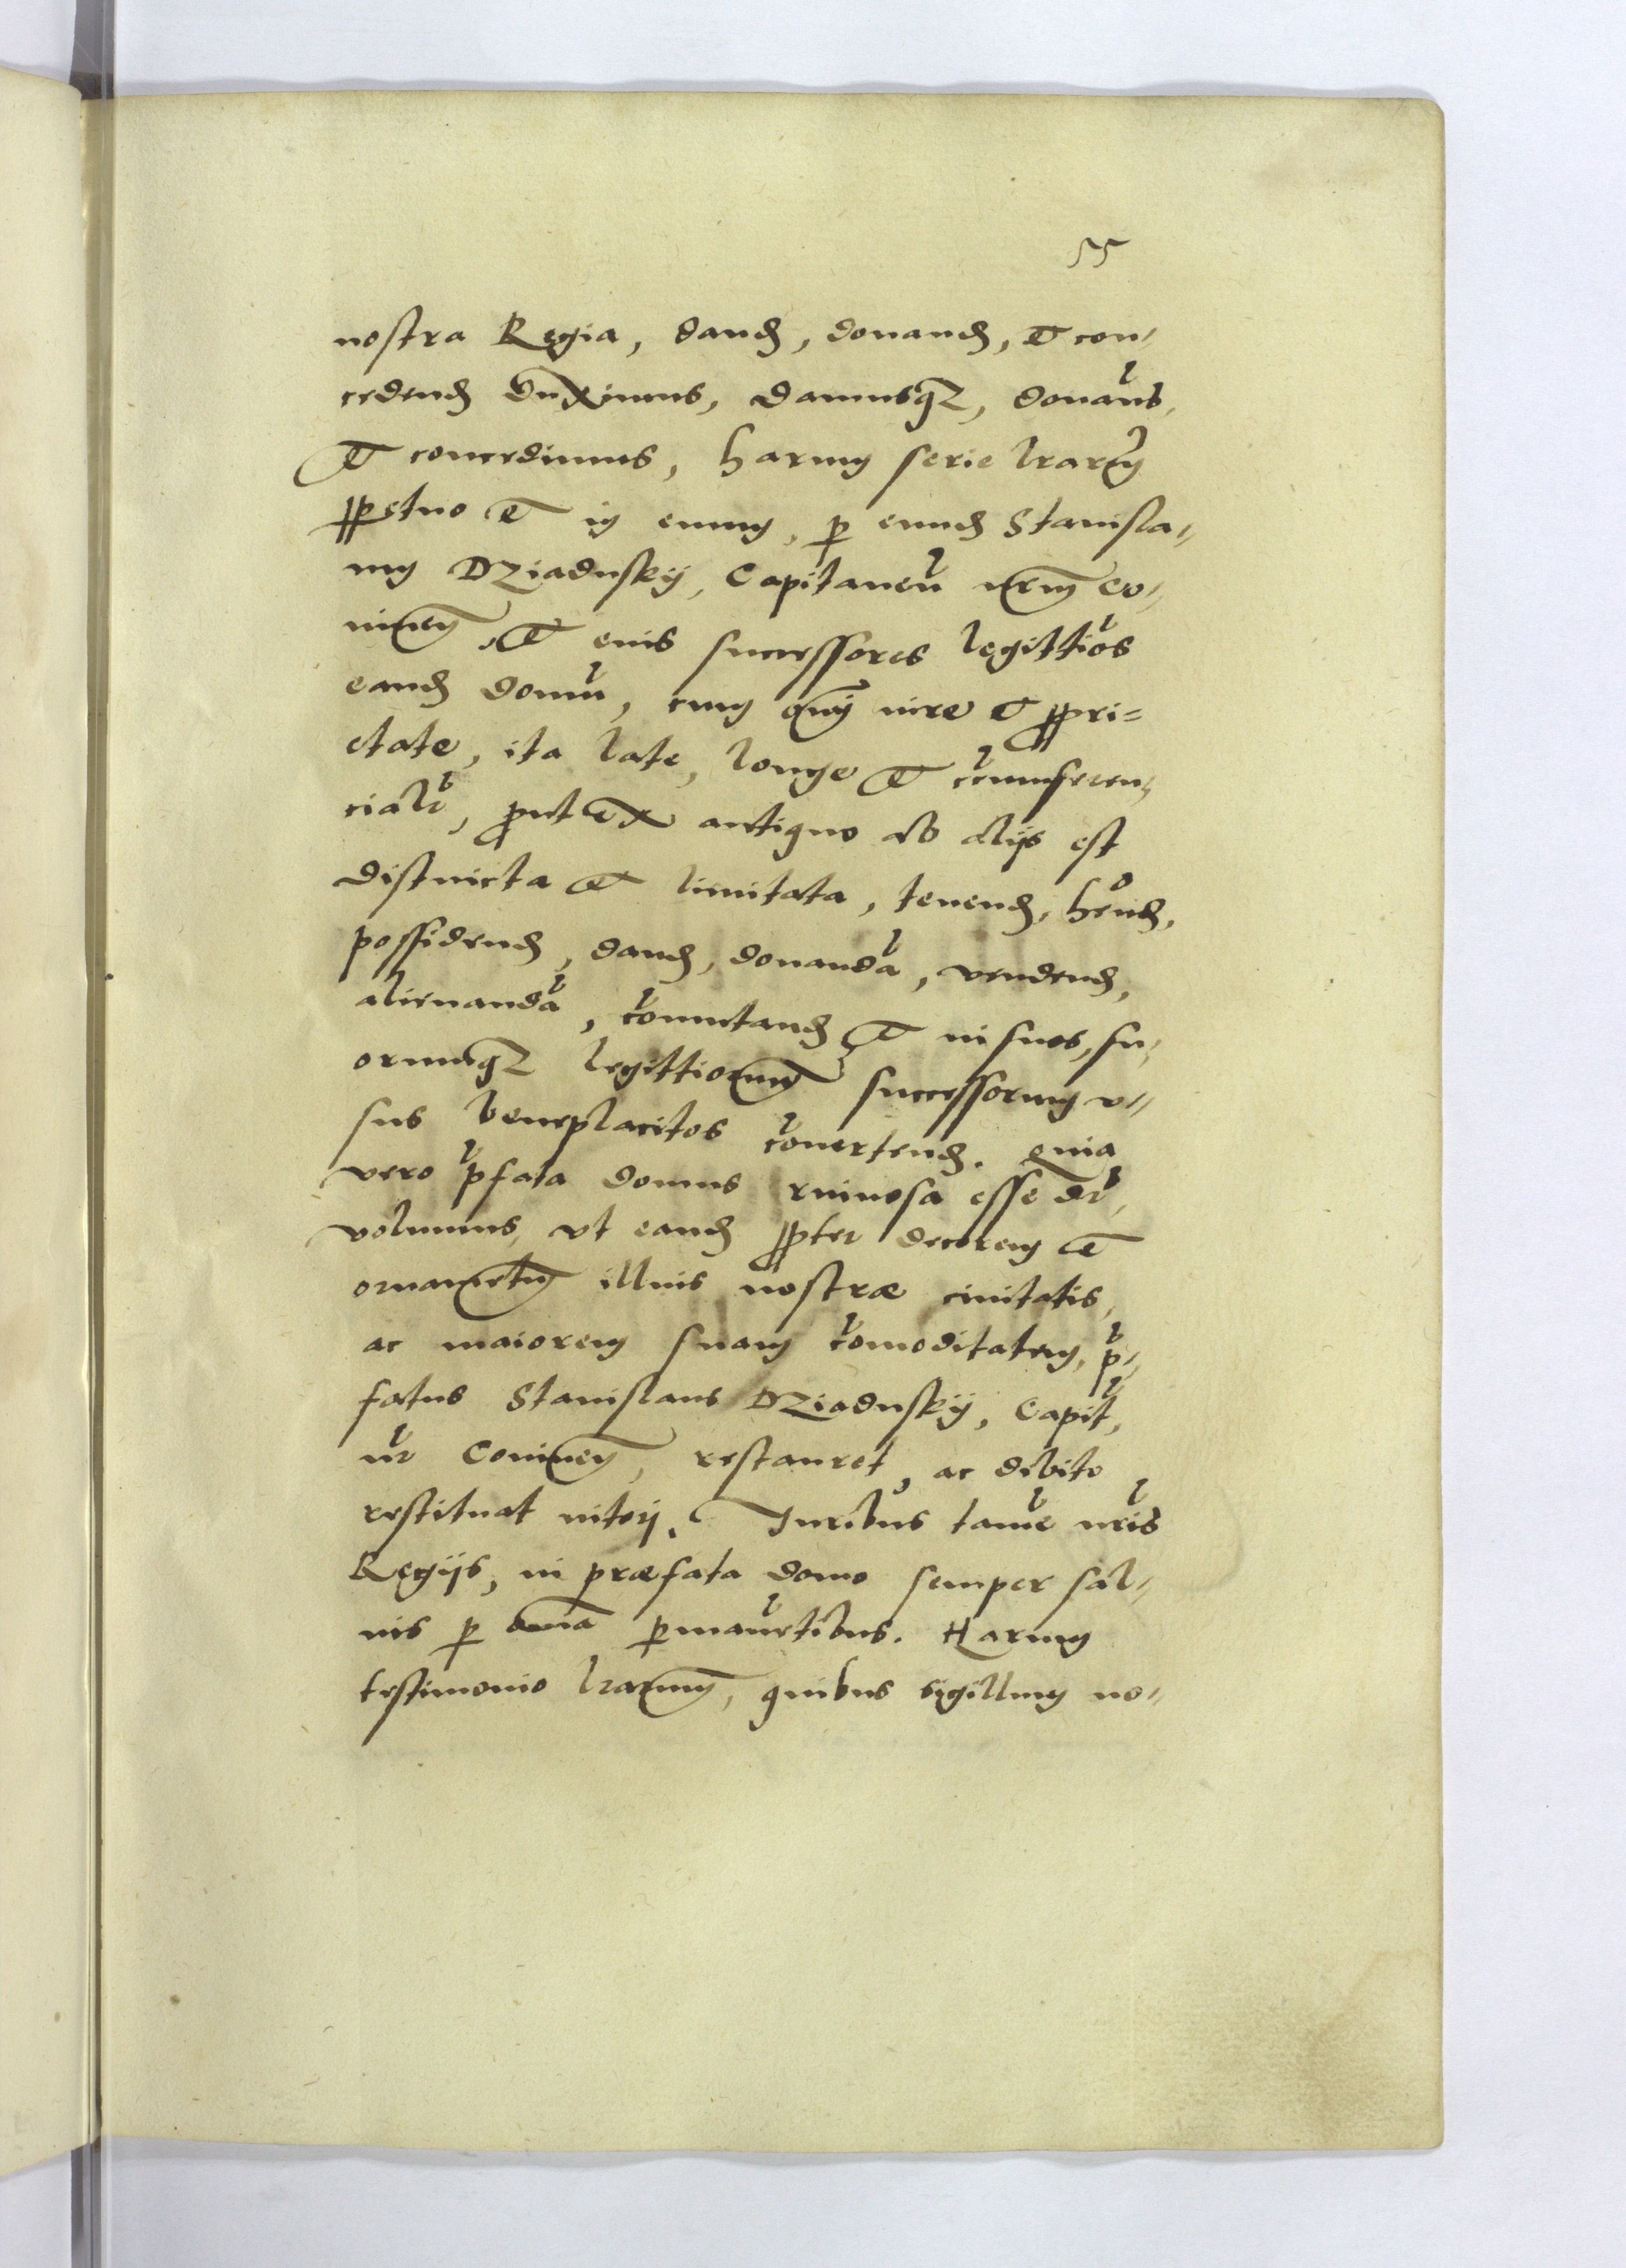 55
nostra Regia, dand, donand, et con-
cedend duximus, damusq, donams,
et concedimus, harum serie lrarum
ppetuo et in euum, p eund Stanisla-
um Dziadusky, Capitaneu nrm Co-
ninen, et eius successores legittios
eand domu, cum omi iure et ppri=
etate, ita late, longe et circumferen-
cialr, put ex antiquo ab alijs est
distincta et limitata, tenend, hend,
possidend, dand, donanda, vendend,
alienanda, comutand et in suos, su-
orumq legittiorum successorum v-
sus beneplacitos conuertend. Quia
vero pfata domus ruinosa esse dr,
volumus, vt eand ppter decorem et
ornametum illius nostræ ciuitatis,
ac maiorem suam comoditatem, p-
fatus Stanislaus Dziadusky, Capit,
nr Coninen, restauret, ac debito
restituat nitori. Juribus tame nris
Regijs, in præfata domo semper sal-
uis p oia pmanetibus. Harum
testimonio lrarum, quibus sigillum no-